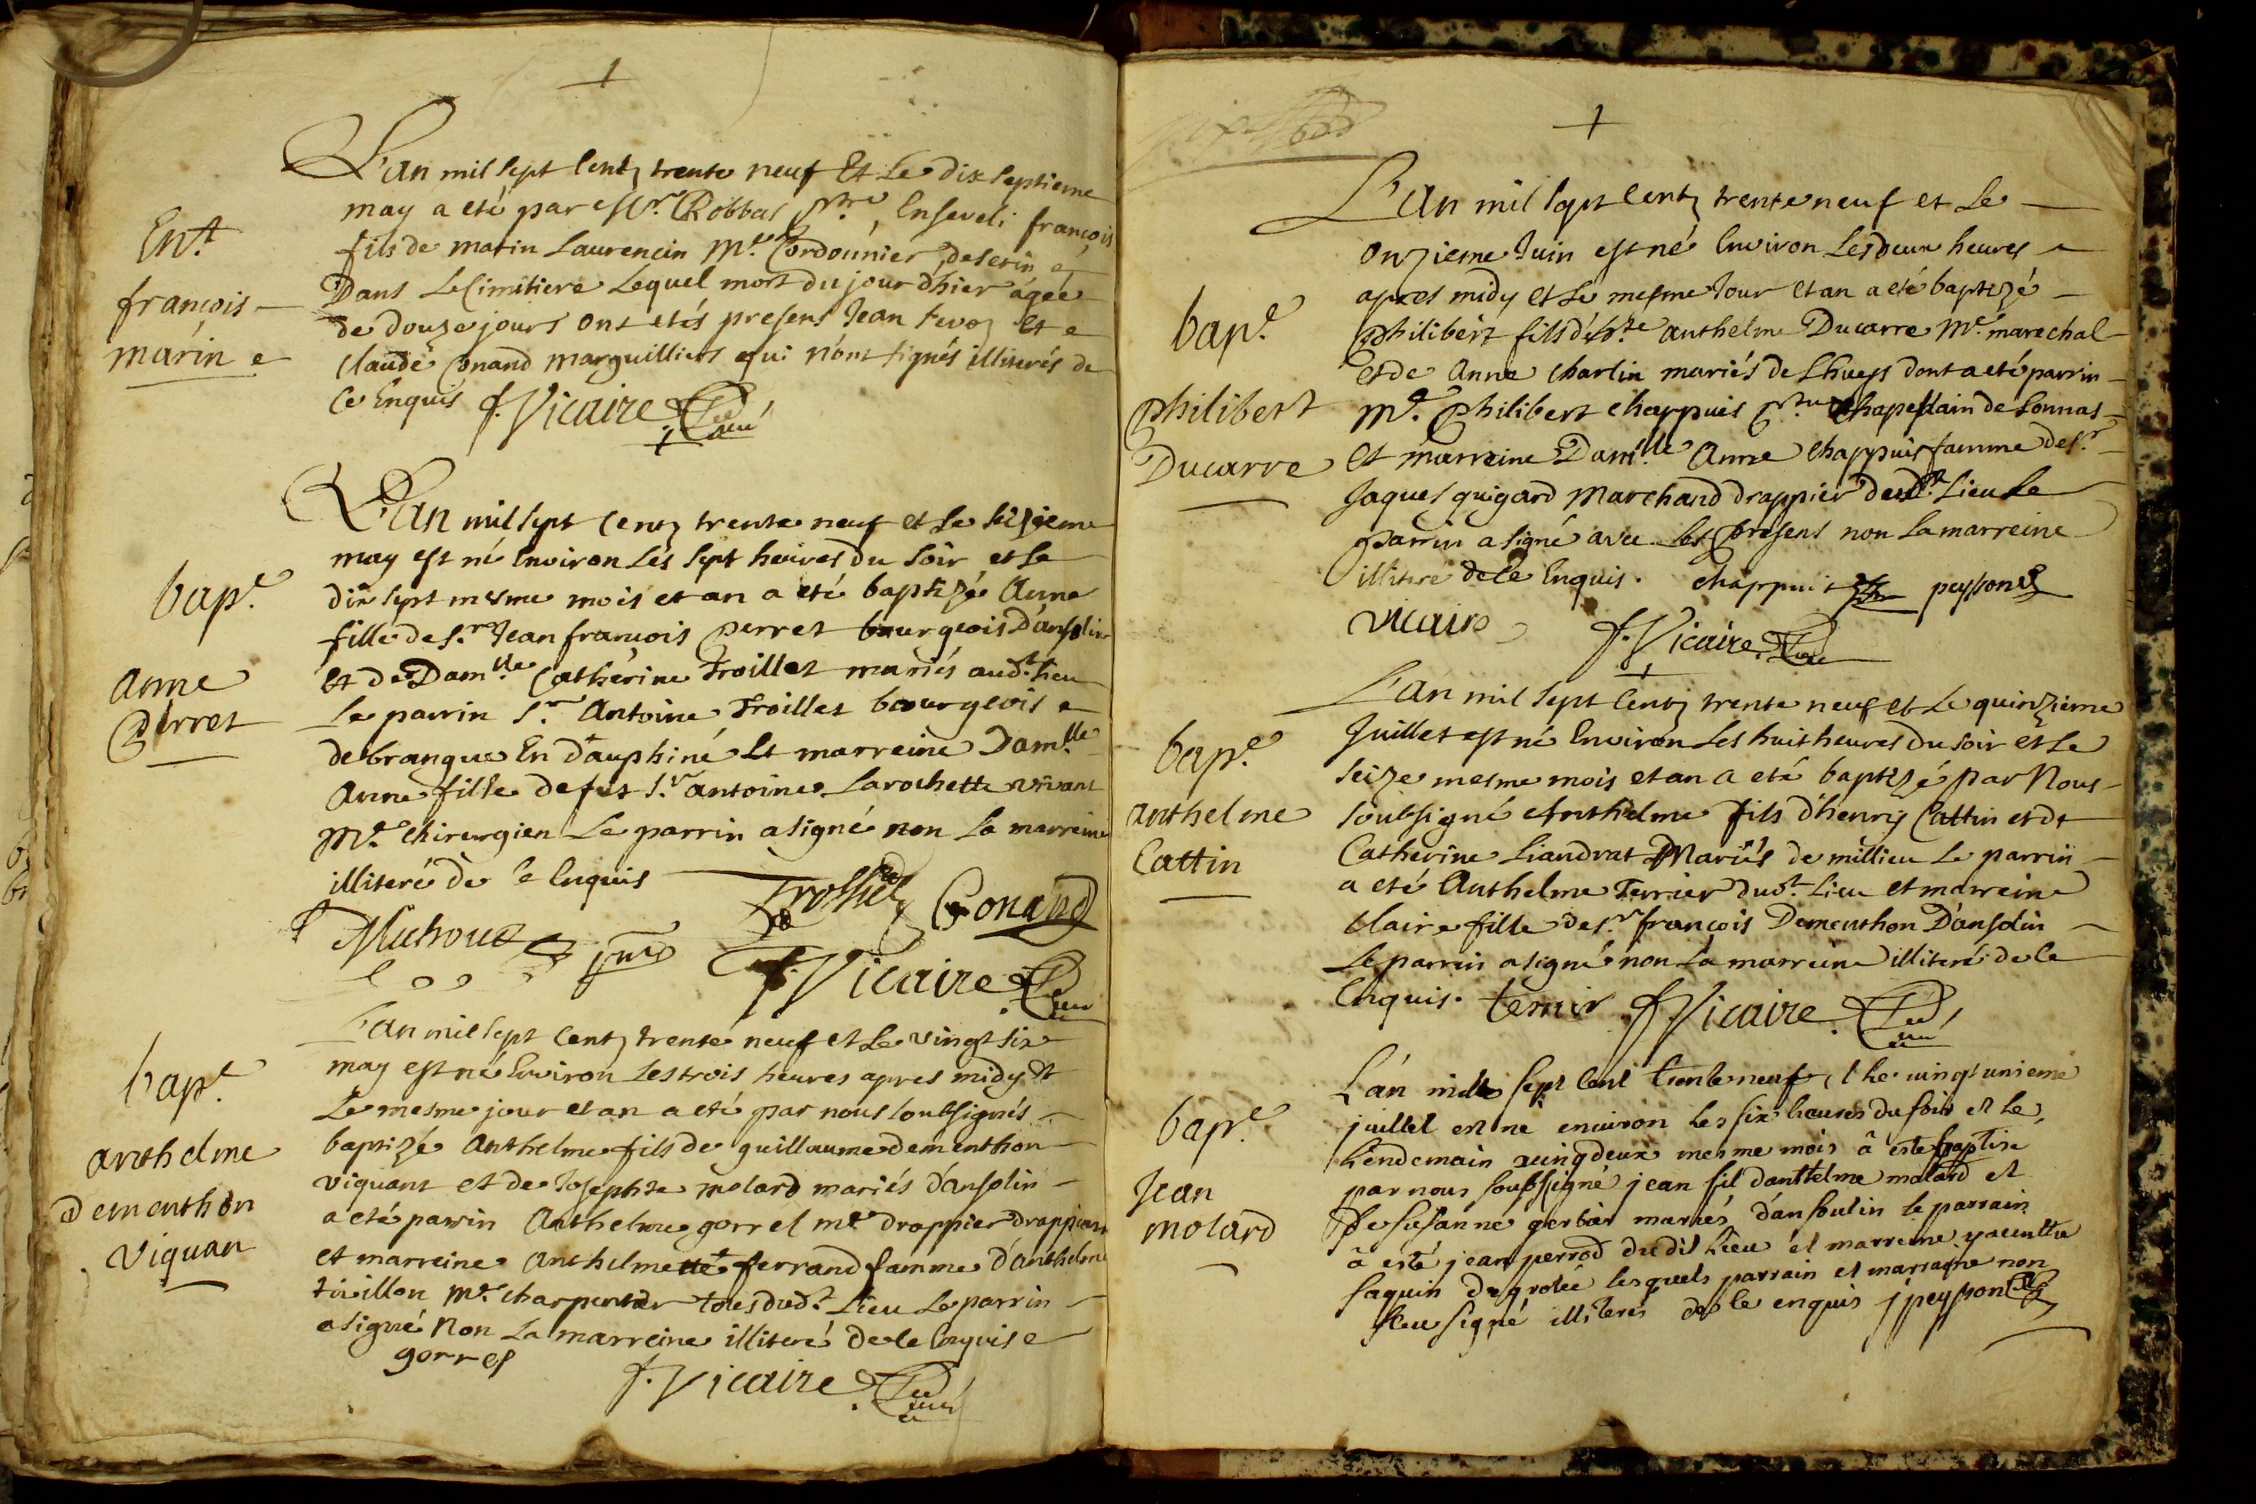 Ent.
françois
marin
L'an mil sept Centz trente neuf Et Le dix septieme
may a eté par Mr. Robbas ptre Enseveli françois
fils de marin Laurencin Me. Cordonnier de serin
Dans Le Cimitiere Lequel mort du jour d'hier ágée
de douze jours ont etés presens Jean et
Claude Conand marguilliers qui n'ont signés illiterés de
Ce Enquis f. Vicaire
bape.
Anne
perret
L'an mil sept Centz trente neuf et Le seizieme
may est né Environ Les sept heures du Soir et Le
dix sept mesme mois et an a eté baptizé Anne
fille de Sr. Jean françois perret bourgeois D'ansolin
et de Damlle. Catherine Troillet mariés aud.t Lieu
Le parrin Sr. Antoine Troillet bourgeois
de brangue En dauphiné Et marreine Damlle.
Anne fille de feu Sr. antoine Larochette vivant
Me. Chirurgien Le parrin a signé non La marreine
illiteré de Ce Enquis
Trollliet Conand
f. Vicaire
bape.
anthelme
dementhon
viguan
L'an mil sept Centz trente neuf et Le vingt six
may est né Environ Les trois heures apres midy Et
Le mesme jour et an a eté par nous soubsignés
baptizé Anthelme fils de guillaume dementhon
viguant et de Josephte molard mariés d'ansolin
a eté parrin Anthelme gorrel me. drappier drappier
et marreine Anthelmette ferrand famme d'Anthelme
tivillon Me. Charpentier tous dud.t Lieu Le parrin
a signé Non La marreine illiteré de Ce Enquis
gorrel
f. Vicaire
bape.
philibert
Ducarre
L'an mil sept Centz trente neuf et Le
onzieme Juin est né Environ Les deux heures
apres midy et Le mesme Jour et an a eté baptizé
philibert fils d'hte. anthelme Ducarre Me. marechal
et de Anne Charlin mariés de Lhueys dont a eté parrin
Me. philibert Chappuis Chapellain de Lonnas
et marreine Damlle. Anne Chappuis famme de Sr.
Jaques quigard Marchand drappier dud.t Lieu Le
parrin a signé avec les presens non La marreine
illiteré de Ce Enquis. Chappuis peysson
vicaire
f. Vicaire
bape.
anthelme
Cattin
L'an mil sept Centz trente neuf et Le quinzieme
Juillet est né Environ Les huit heures du soir et Le
seize mesme mois et an a eté baptizé par Nous
soubsigné Anthelme fils d'henry Cattin et de
Catherine Liandrat Mariés de millieu Le parrin
a eté Anthelme Terrier dud.t Lieu et marreine
Claire fille de Sr. françois Dementhon D'ansolin
Le parrin a signé non La marreine illiteré de Ce
Enquis. terrier f. Vicaire
bape.
Jean
molard
L'an mille sept Cent trente neuf et Le vingt unieme
juillet est né environ les six heures du soir et Le
Lendemain vingdeux mesme mois â esté baptisé
par nous soubsigné jean fil d'anthelme molard et
de susanne gerbar mariés d'ansoulin le parrain
â esté jean perrod dudit Lieu et marreine
saquin de grolée lesquels parrain et marraine non
signé illiterés de Ce enquis j peysson